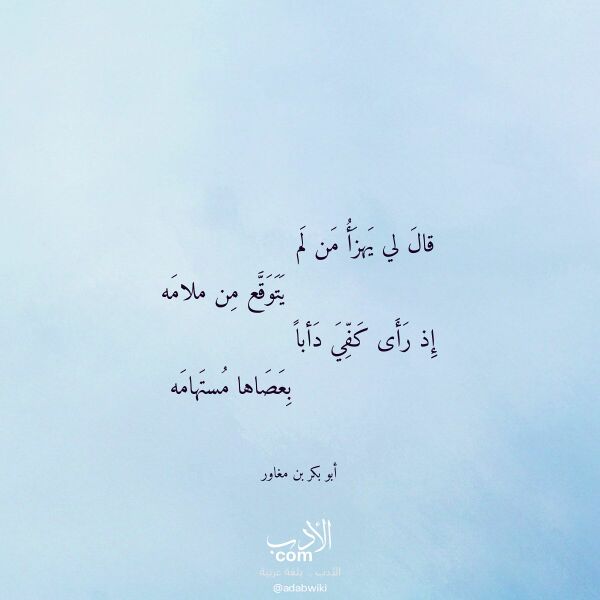 قالَ لي يَهزَأُ مَن لَم
يَتَوَقَّع مِن ملامَه
إِذ رَأَى كَفِّيَ دَأباً
بِعَصَاها مُستَهامَه
أبو بكر بن مغاور
الأدب
com
الأدب .. بلغة عربية
@adabwiki